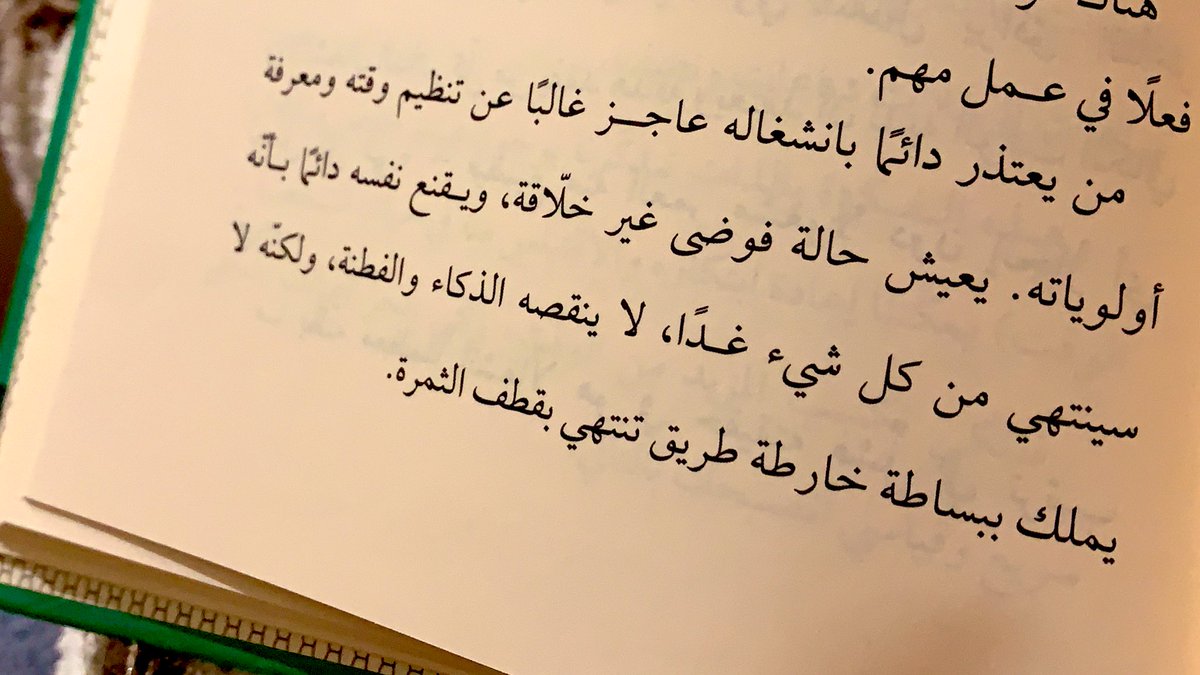 هناك
فعلًا في عمل مهم.
من يعتذر دائمًا بانشغاله عاجز غالبًا عن تنظيم وقته ومعرفة
أولوياته. يعيش حالة فوضى غير خلّاقة، ويقنع نفسه دائمًا بأنّه
سينتهي من كل شيء غدًا، لا ينقصه الذكاء والفطنة، ولكنّه لا
يملك ببساطة خارطة طريق تنتهي بقطف الثمرة.